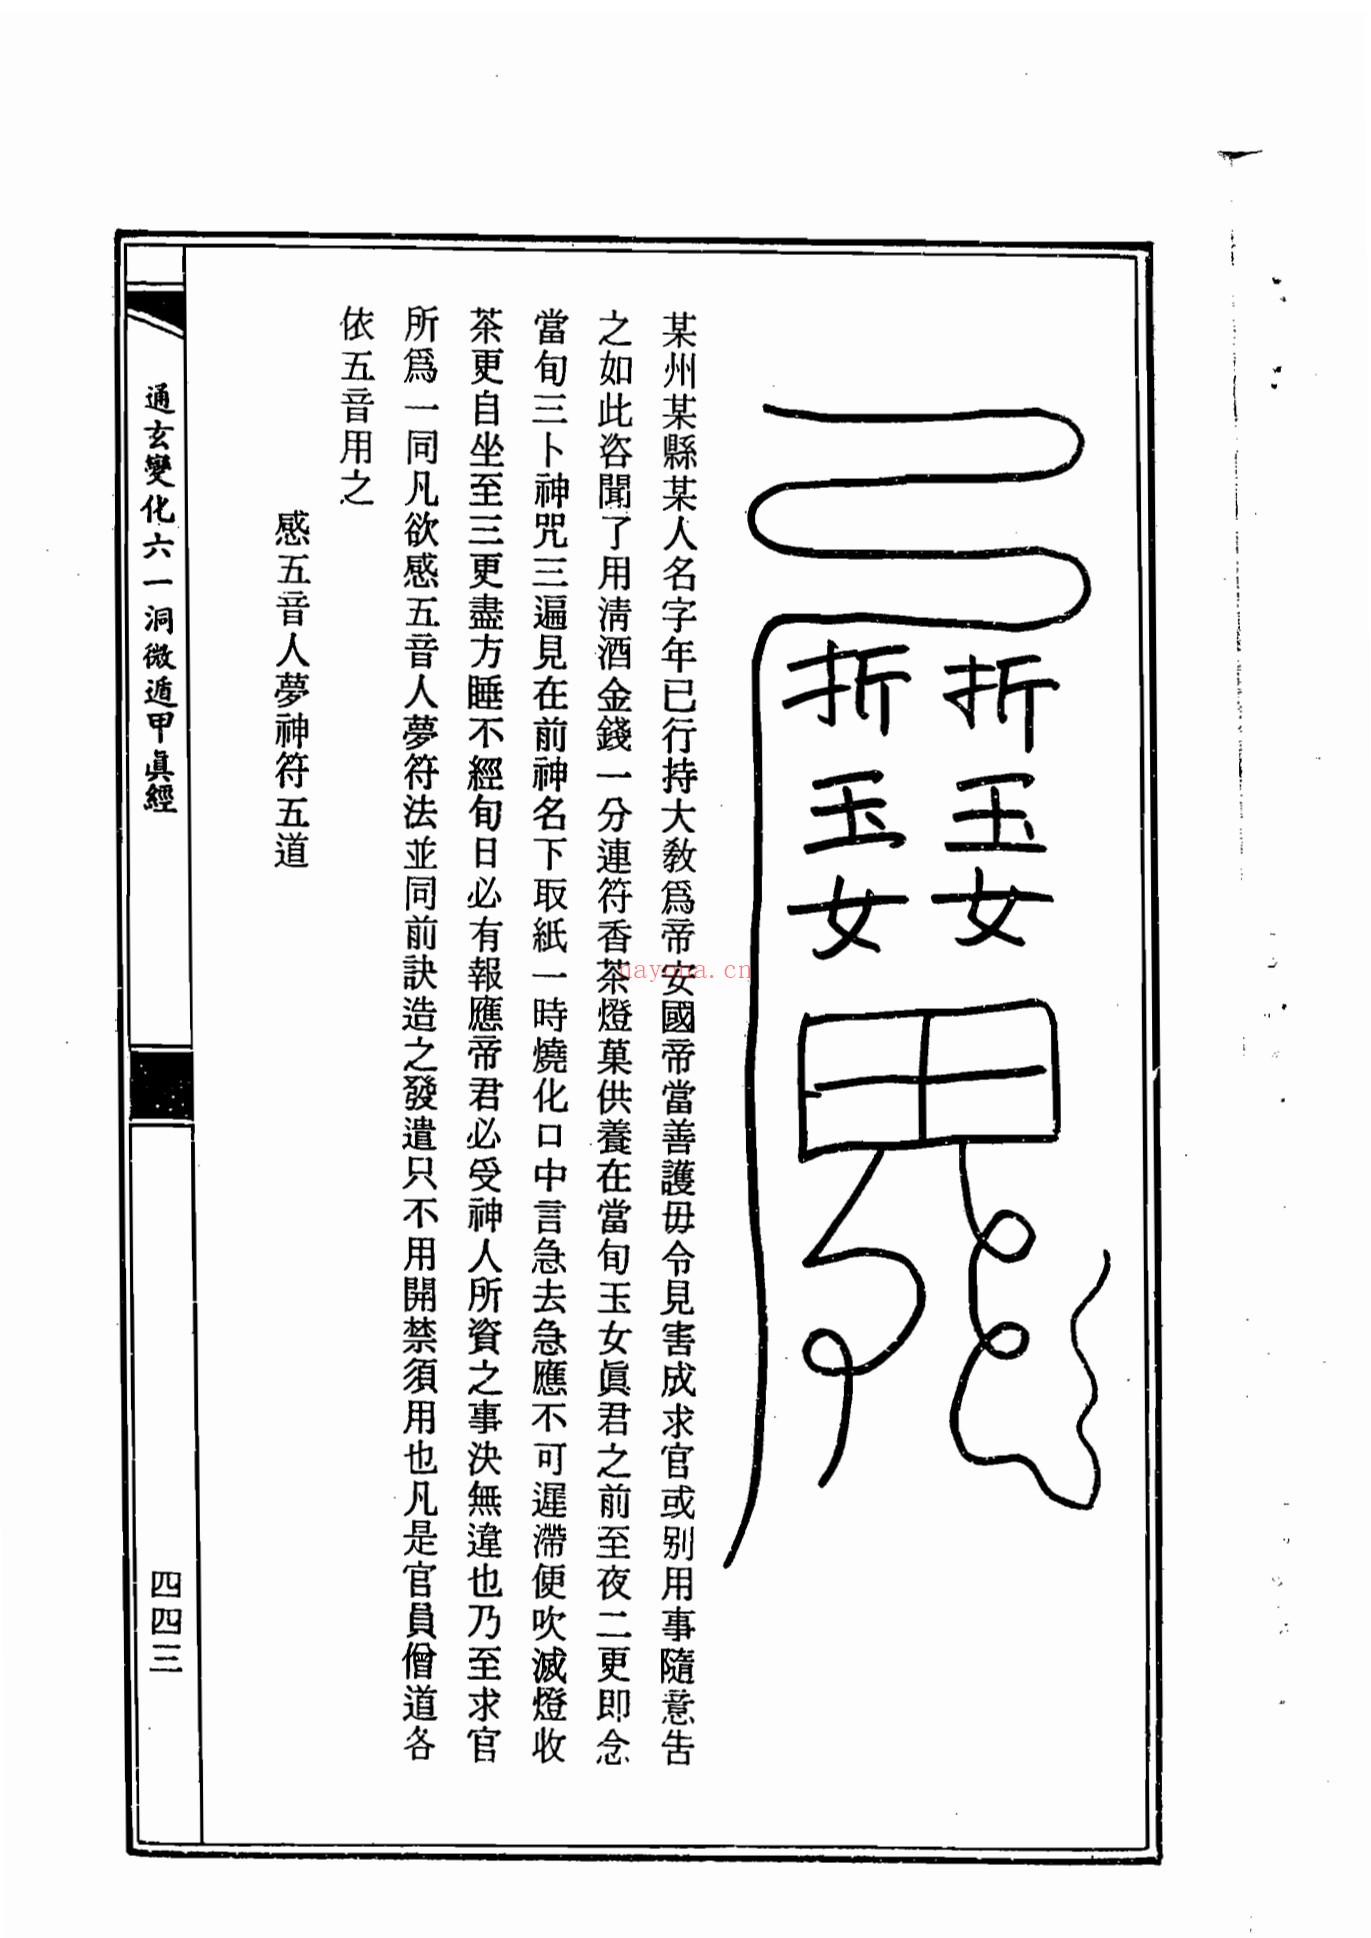 折玉女
折玉女
某州某縣某人名字年已行持大教爲帝女國帝當善護毋令見害成求官或别用事隨意告
之如此咨聞了用淸酒金錢一分連符香茶燈菓供養在當旬玉女眞君之前至夜二更即念
當旬三卜神咒三遍見在前神名下取紙一時燒化口中言急去急應不可遲滯便吹滅燈收
茶更自坐至三更盡方睡不經旬日必有報應帝君必受神人所資之事決無違也乃至求官
所爲一同凡欲感五音人夢符法並同前訣造之發遣只不用開禁須用也凡是官員僧道各
依五音用之
感五音人夢神符五道
通玄變化六一洞微遁甲眞經
四四三
nayona.cn